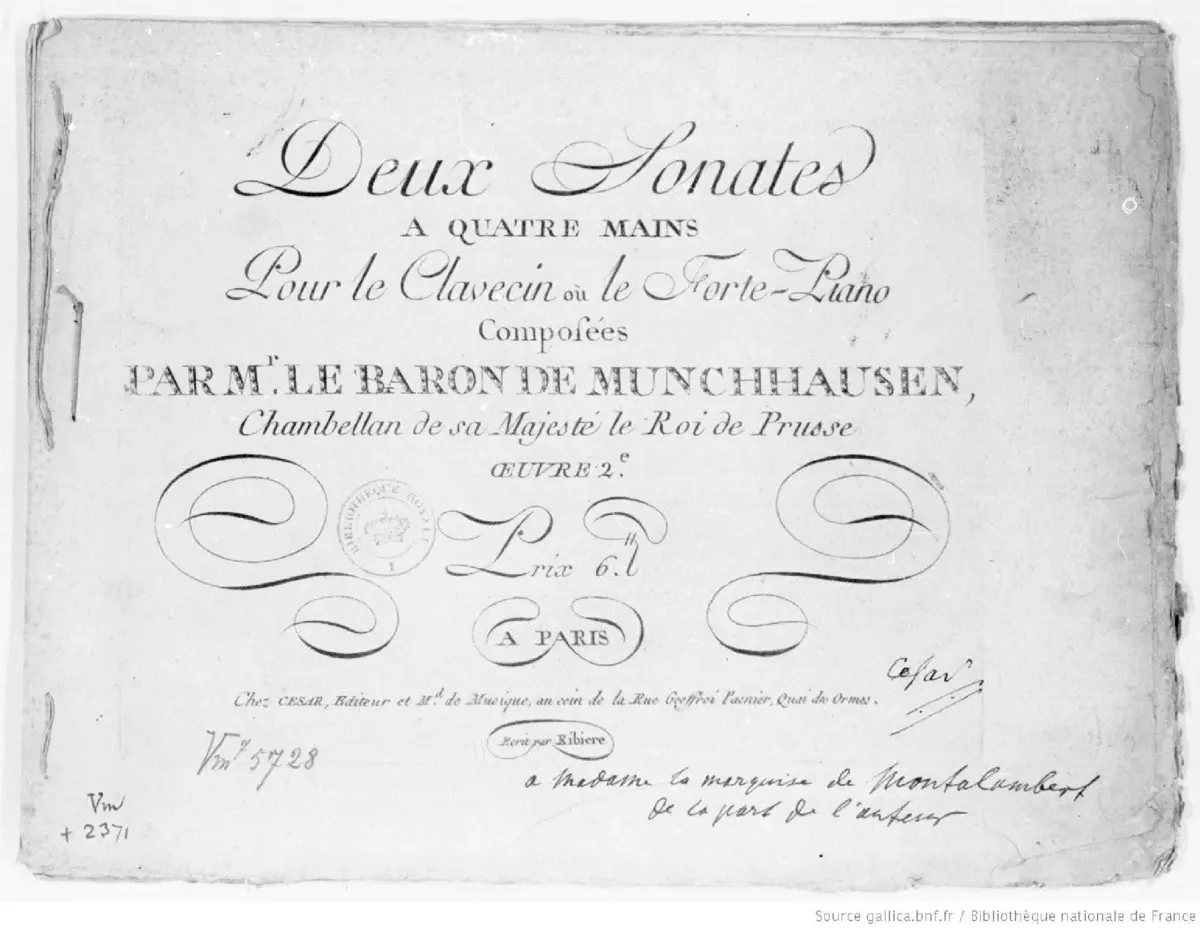 Deux Sonates
A QUATRE MAINS
Pour le Clavecin où le Forte-Piano
Composées
PAR Mr. LE BARON DE MUNCHHAUSEN,
Chambellan de sa Majesté le Roi de Prusse
ŒUVRE 2.e
BIBLIOTHEQUE ROYALE
1
Prix 6.tt
A PARIS
Cesar
Chez CESAR, Editeur et Md. de Musique, au coin de la Rue Geoffroi l'asnier, Quai des Ormes.
Ecrit par Ribiere
Vm 7 5728
a Madame la marquise de Montalambert
de la part de l'auteur
Vm
+ 2371
Source gallica.bnf.fr / Bibliothèque nationale de France